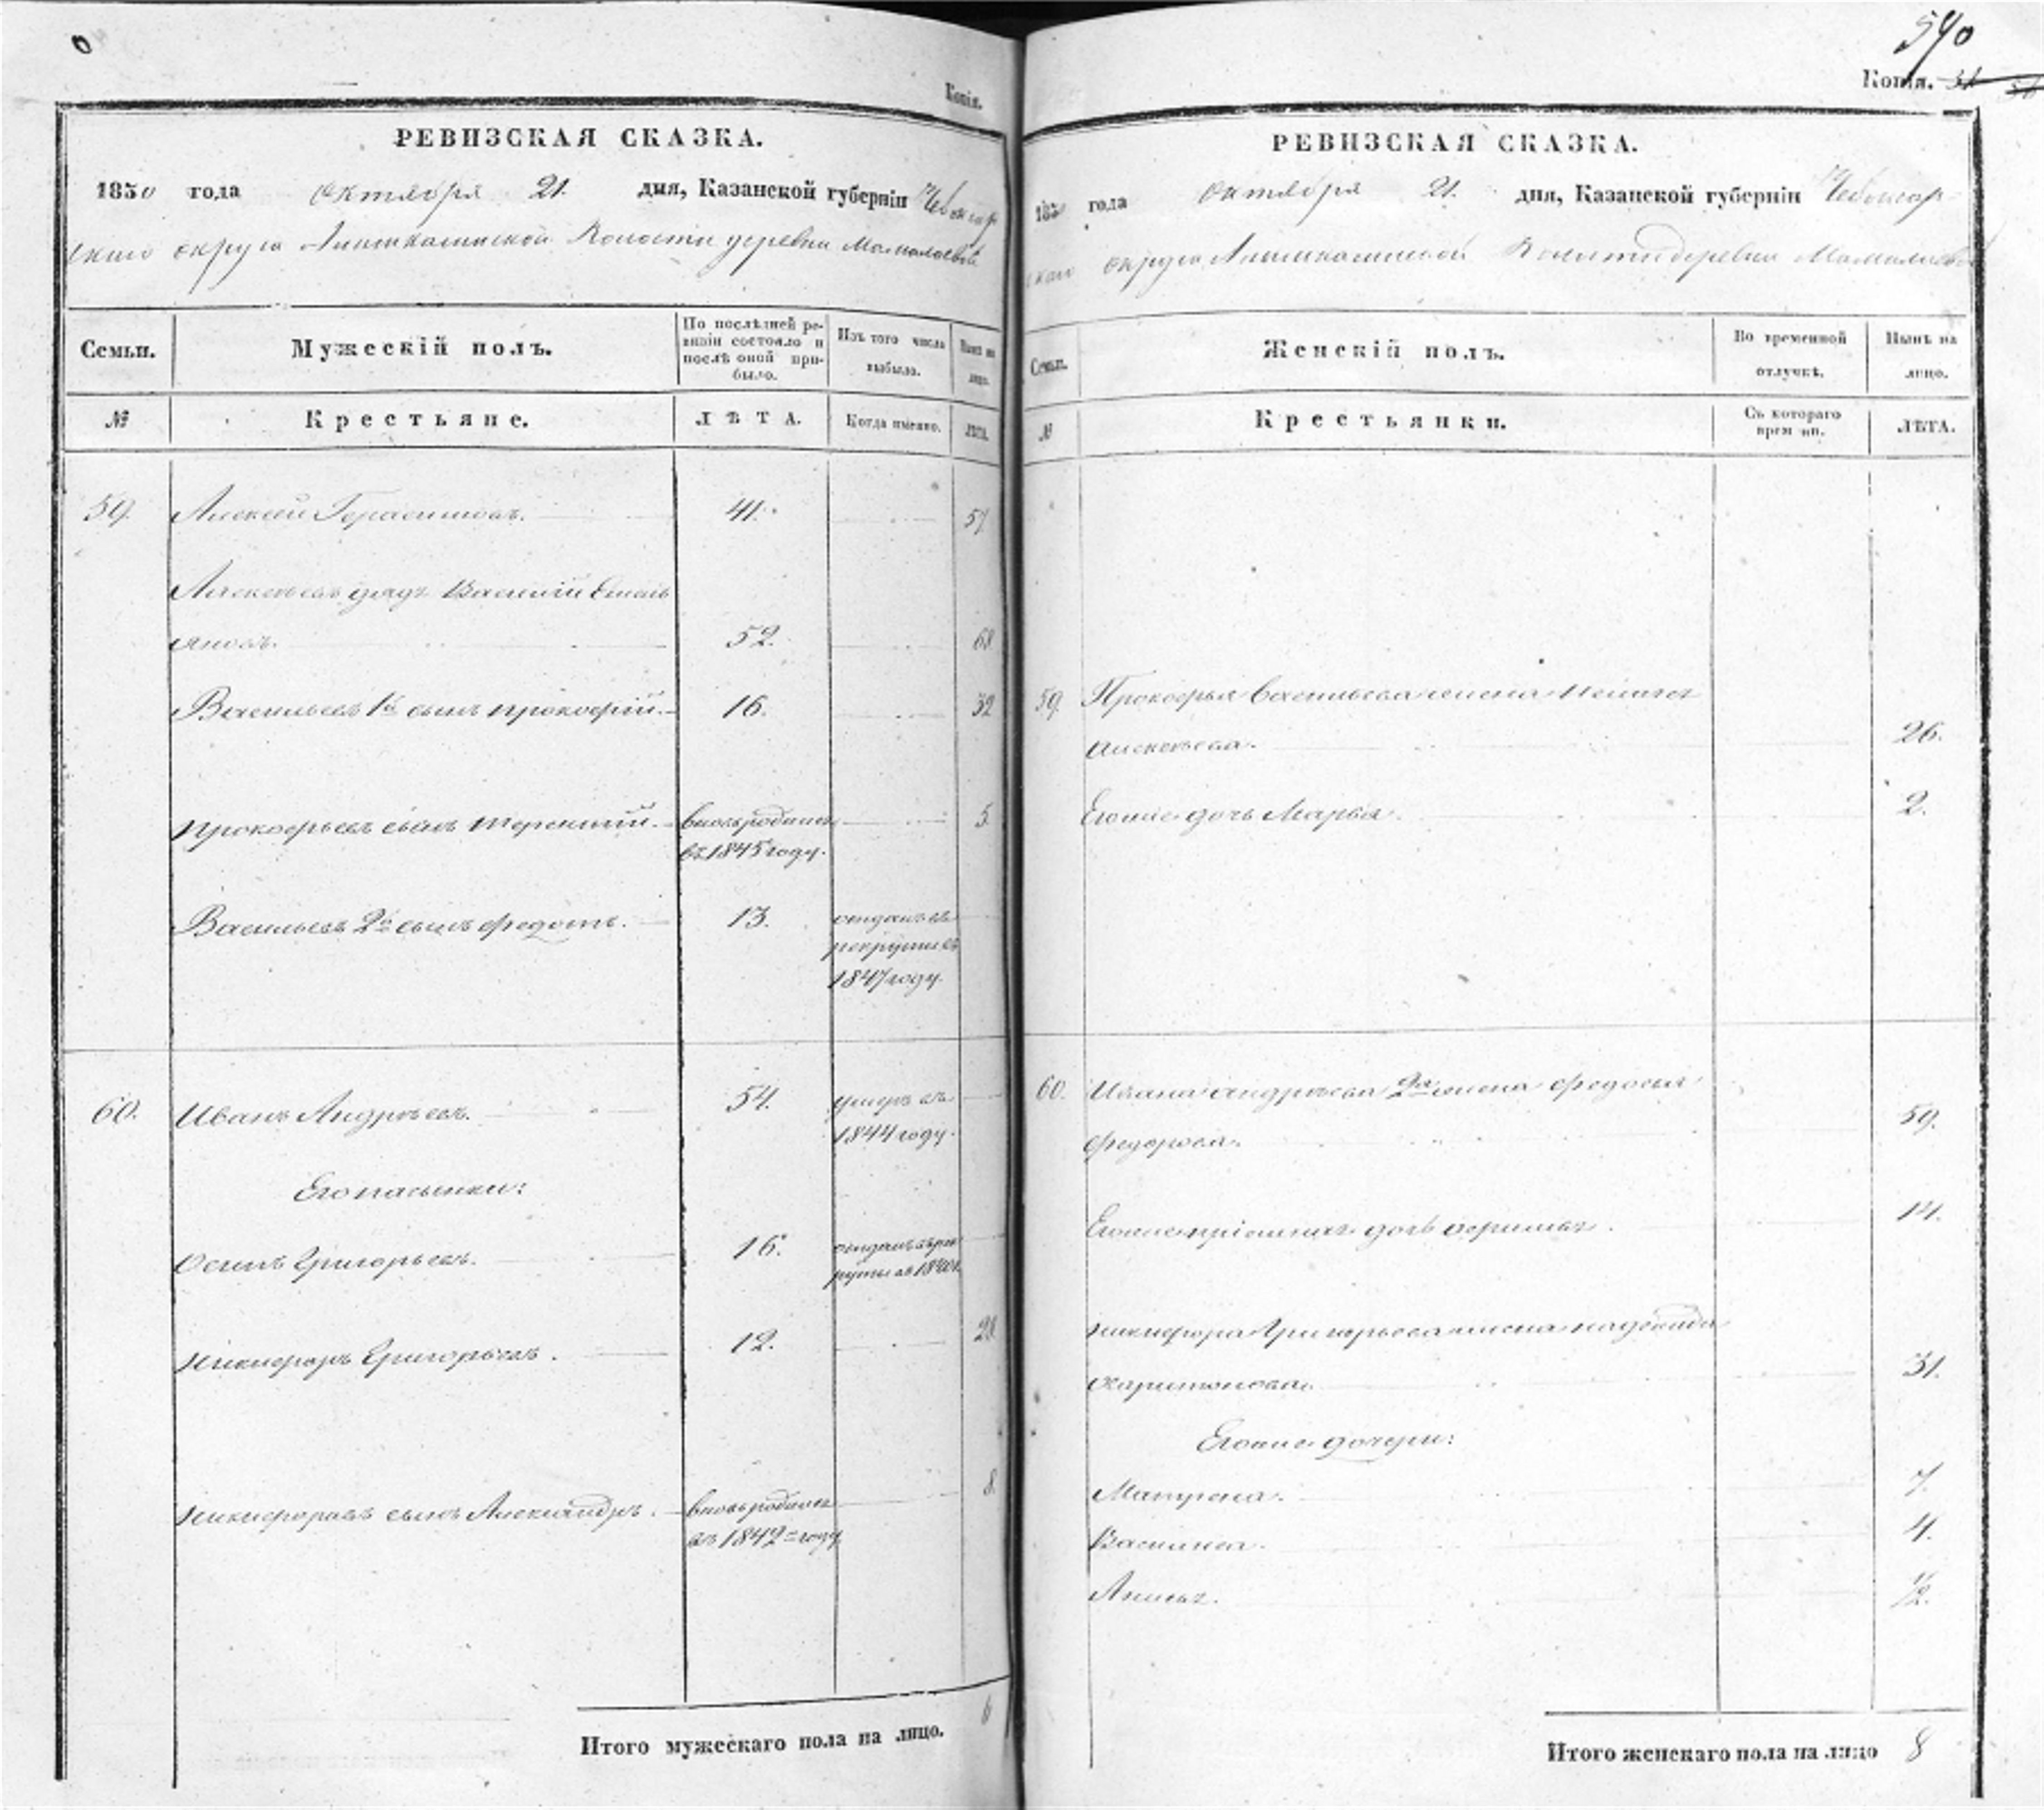 Копія.
РЕВИЗСКАЯ СКАЗКА.
1850 года октября 21. дня, Казанской губерніи Чебоксар
скаго округа Аттиккасинской Волости деревни
Семьи. Мужескій полъ. По послѣдней ре-
визіи состояло и
послѣ оной при-
было. Изъ того числа
выбыло. Нынѣ на
лицо.
№ Крестьяне. ЛѢТА. Когда именно. ЛѢТА.
59. Алексѣй Герасимовъ. 41. 57
Алексѣевъ дядя Василій Емель
яновъ. 52. 68
Васильевъ 1й сынъ Прокофій. 16. 32
Прокофьевъ сынъ Терентій. вновьродился 5
въ 1845 году.
Васильевъ 2й сынъ Федотъ. 13. отданъ въ
рекруты въ
1847 году.
60. Иванъ Андреевъ. 54. умеръ въ
1844 году.
Его пасынки:
Осипъ Григорьевъ. 16. отданъ въ рек
руты въ
Никифоръ Григорьевъ. 12. 28
Никифоровъ сынъ Александръ. вновьродился 8
въ 1842 = году
Итого мужескаго пола на лицо. 6
540
Копія.
РЕВИЗСКАЯ СКАЗКА.
1850 года октября 21. дня, Казанской губерніи Чебоксар
скаго округа Аттиккасинской Волости деревни
Семьи. Женскій полъ. Во временной
отлучкѣ. Нынѣ на
лицо.
№ Крестьянки. Съ котораго
времени. ЛѢТА.
59. Прокофья Васильева жена
Алексѣева. 26.
Егоже дочь Марья. 2.
60. Ивана Андреева 2я жена Федосья
Федорова. 59.
Егоже дочь 14.
Никифора Григорьева жена Надежда
Харитонова. 31.
Егоже дочери:
Матрена. 7.
Василиса. 4.
Анисья. 1/2.
Итого женскаго пола на лицо 8